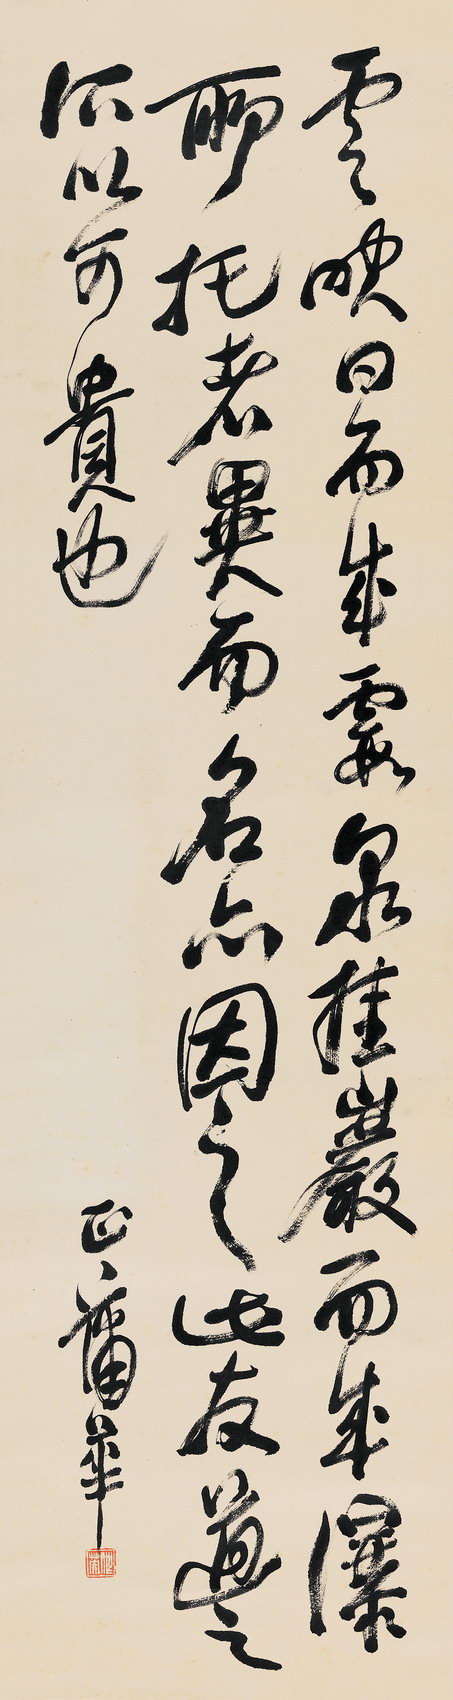 雲映日而成霞泉挂巖而成瀑
所托者異而名亦因之此友道之
所以可貴也
正之蒲華